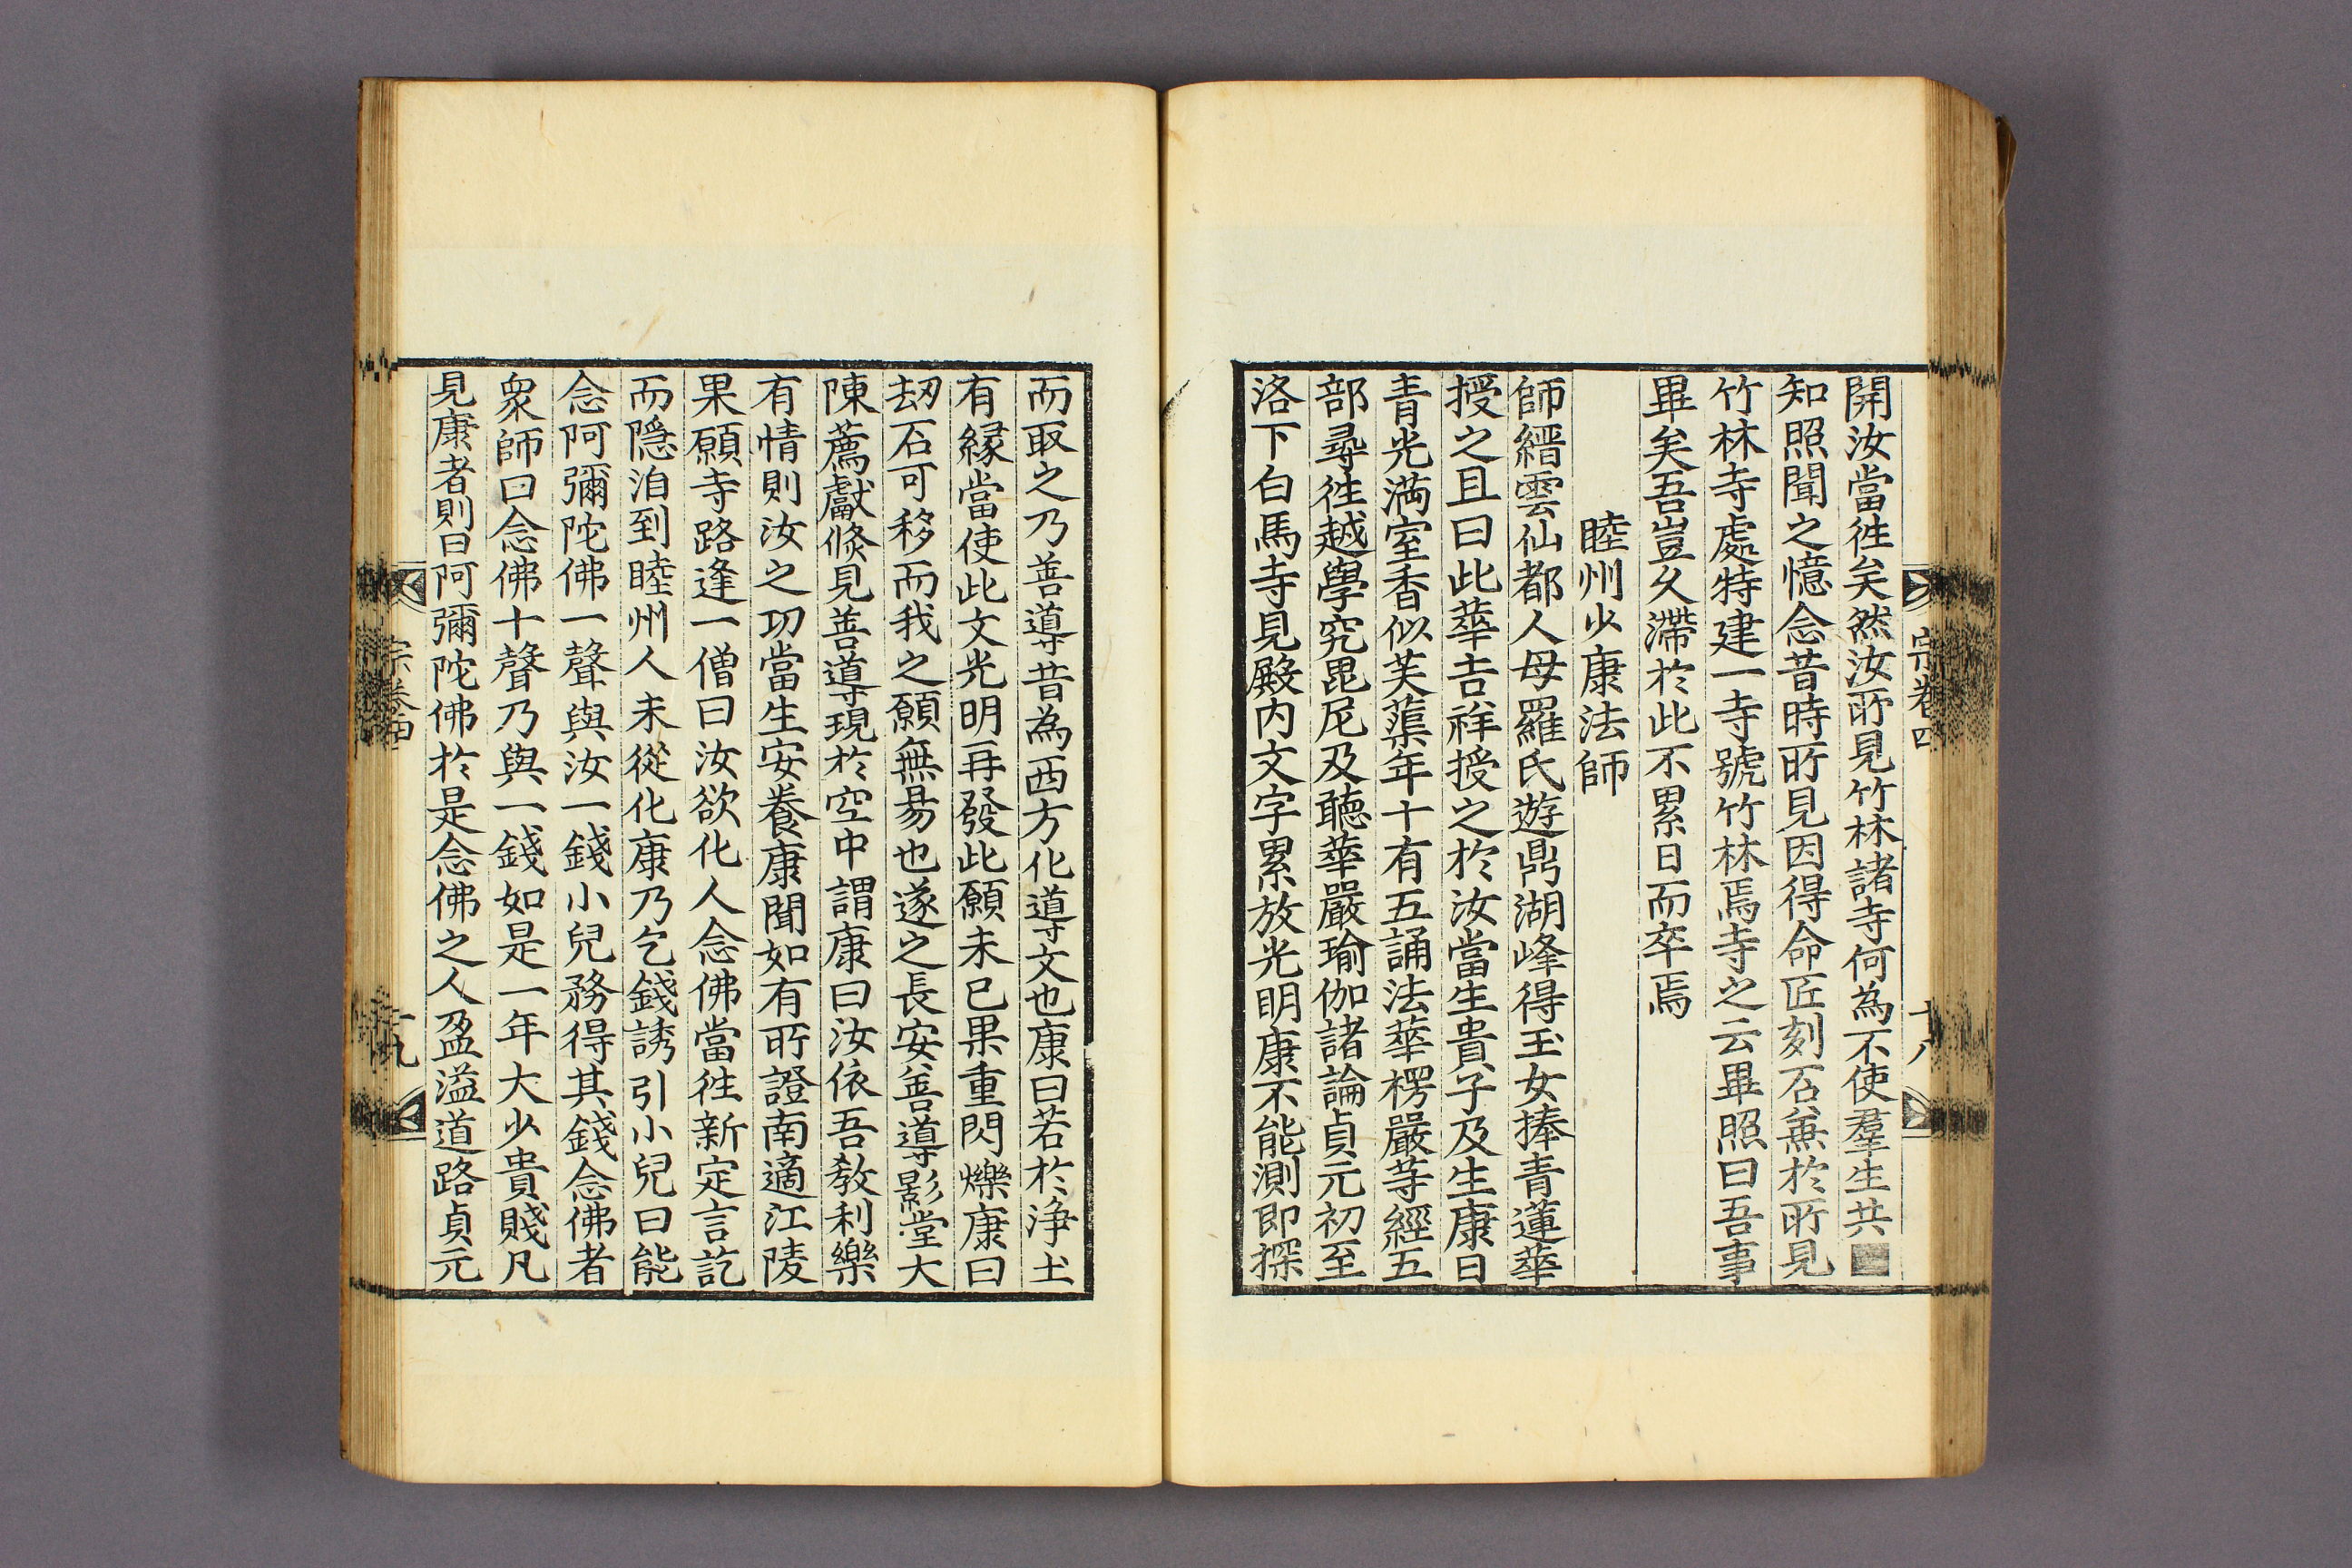 開汝當徃矣然汝所見竹林諸寺何為不使羣生共
知照聞之憶念昔時所見因得命匠刻石兼於所見
竹林寺處特建一寺號竹林焉寺之云畢照曰吾事
畢矣吾豈久滯於此不累日而卒焉
睦州少康法師
師縉雲仙都人母羅氏遊鼎湖峰得玉女捧青蓮華
授之且曰此華吉祥授之於汝當生貴子及生康日
青光滿室香似芙蕖年十有五誦法華楞嚴等經五
部尋徃越學究毘尼及聽華嚴瑜伽諸論貞元初至
洛下白馬寺見殿內文字累放光明康不能測即探
宗卷四
十八
而取之乃善導昔為西方化導文也康曰若於淨土
有緣當使此文光明再發此願未已果重閃爍康曰
劫石可移而我之願無易也遂之長安善導影堂大
陳薦獻倐見善導現於空中謂康曰汝依吾教利樂
有情則汝之功當生安養康聞如有所證南適江陵
果願寺路逢一僧曰汝欲化人念佛當徃新定言訖
而隱洎到睦州人未從化康乃乞錢誘引小兒曰能
念阿彌陀佛一聲與汝一錢小兒務得其錢念佛者
衆師曰念佛十聲乃與一錢如是一年大少貴賤凡
見康者則曰阿彌陀佛於是念佛之人盈溢道路貞元
宗卷四
十九